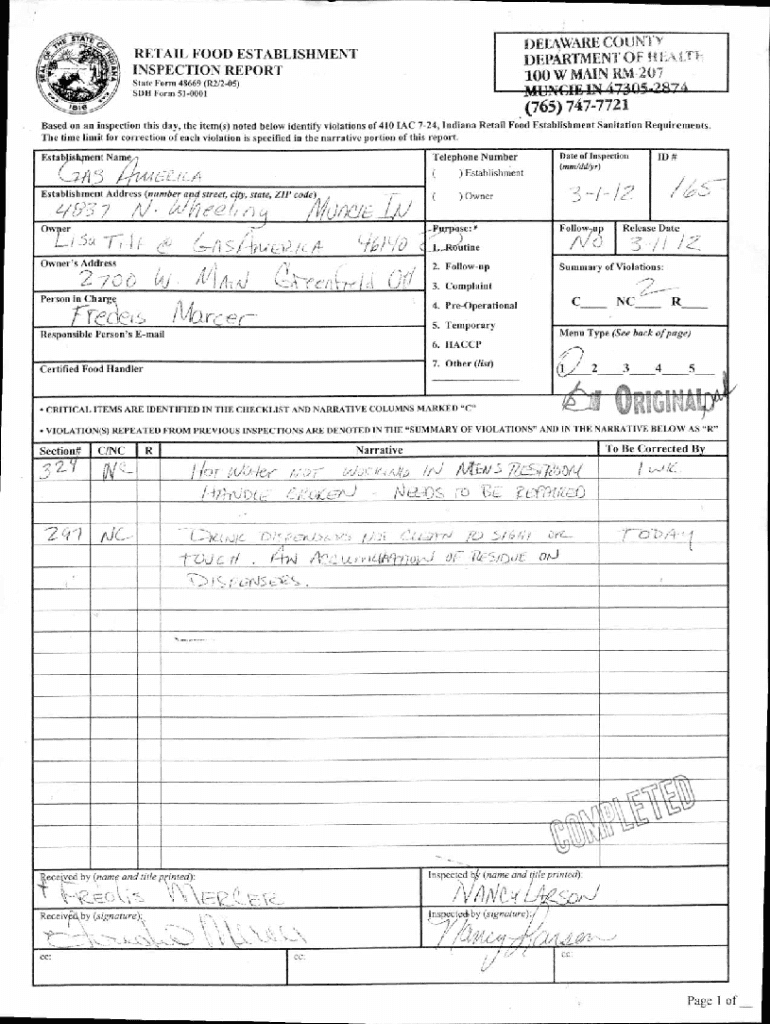 SEAL OF THE STATE OF INDIANA
1816
RETAIL FOOD ESTABLISHMENT
INSPECTION REPORT
State Form 48669 (R2/2-05)
SDH Form 51-0001
DELAWARE COUNTY
DEPARTMENT OF HEALTH
100 W MAIN RM 207
MUNCIE IN 47305-2874
(765) 747-7721
Based on an inspection this day, the item(s) noted below identify violations of 410 IAC 7-24, Indiana Retail Food Establishment Sanitation Requirements.
The time limit for correction of each violation is specified in the narrative portion of this report.
Establishment Name
GAS AMERICA
Telephone Number
( ) Establishment
( ) Owner
Date of Inspection
(mm/dd/yr)
3-1-12
ID #
165
Establishment Address (number and street, city, state, ZIP code)
4837 N. Wheeling MUNCIE IN
Owner
Lisa Tilt @ GASAMERICA 46140
Purpose:
1. Routine
2. Follow-up
3. Complaint
4. Pre-Operational
5. Temporary
6. HACCP
7. Other (list)
Follow-up
NO
Release Date
3-11-12
Owner's Address
2700 W. MAIN Greenfield
Summary of Violations:
2
C___ NC___ R___
Person in Charge
Fredeis Marcer
Responsible Person's E-mail
Menu Type (See back of page)
1 2 3 4 5
Certified Food Handler
ORIGINAL
• CRITICAL ITEMS ARE IDENTIFIED IN THE CHECKLIST AND NARRATIVE COLUMNS MARKED "C"
• VIOLATION(S) REPEATED FROM PREVIOUS INSPECTIONS ARE DENOTED IN THE "SUMMARY OF VIOLATIONS" AND IN THE NARRATIVE BELOW AS "R"
Section# C/NC R Narrative To Be Corrected By
324 NC Hot Water NOT WORKING IN MENS RESTROOM 1 WK
HANDLE BROKEN - NEEDS TO BE REPAIRED
297 NC DRINK DISPENSERS NOT CLEAN TO SIGHT OR TODAY
TOUCH. AN ACCUMULATION OF RESIDUE ON
DISPENSERS.
COMPLETED
Received by (name and title printed):
FREDIS MERCER
Inspected by (name and title printed):
NANCY LARSON
Received by (signature):
Inspected by (signature):
Nancy Larson
cc: cc: cc:
Page 1 of __